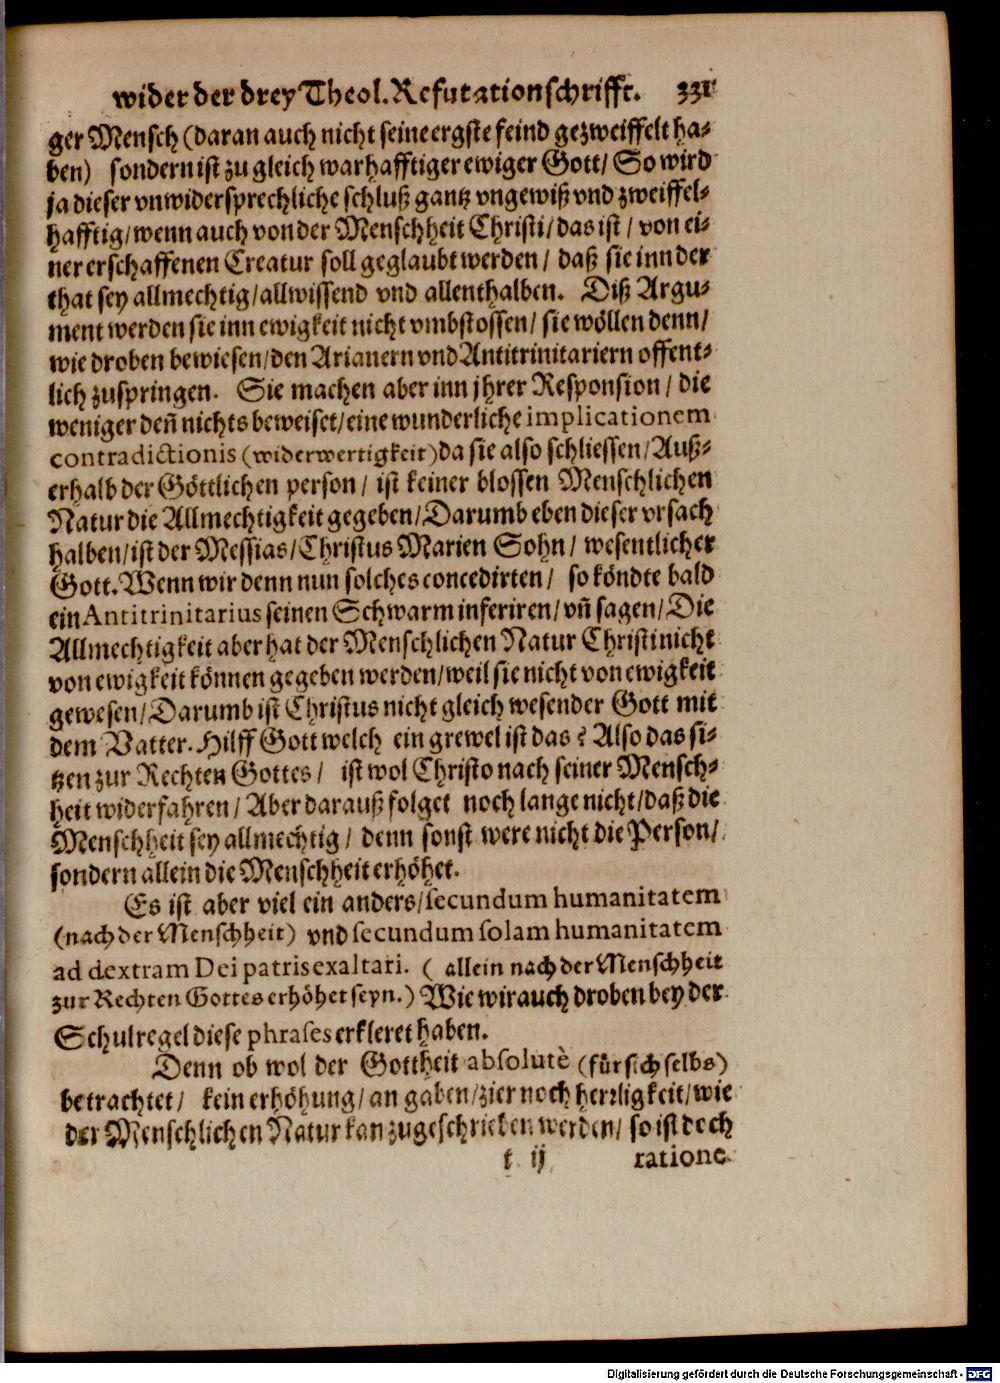 wider der drey Theol. Refutationschrifft. 331
ger Mensch (daran auch nicht seine ergste feind gezweiffelt ha⸗
ben) sondern ist zu gleich warhafftiger ewiger Gott/ So wird
ja dieser vnwidersprechliche schluß gantz vngewiß vnd zweiffel⸗
hafftig/ wenn auch von der Menschheit Christi/ das ist/ von ei⸗
ner erschaffenen Creatur soll geglaubt werden/ daß sie inn der
that sey allmechtig/ allwissend vnd allenthalben. Diß Argu⸗
ment werden sie inn ewigkeit nicht vmbstossen/ sie wöllen denn/
wie droben bewiesen/ den Arianern vnd Antitrinitariern offent⸗
lich zuspringen. Sie machen aber inn jhrer Responsion/ die
weniger deñ nichts beweiset/ eine wunderliche implicationem
contradictionis (widerwertigkeit) da sie also schliessen/ Auß⸗
erhalb der Göttlichen person/ ist keiner blossen Menschlichen
Natur die Allmechtigkeit gegeben/ Darumb eben dieser vrsach
halben/ ist der Messias/ Christus Marien Sohn/ wesentlicher
Gott. Wenn wir denn nun solches concedirten/ so köndte bald
ein Antitrinitarius seinen Schwarm inferiren/ vñ sagen/ Die
Allmechtigkeit aber hat der Menschlichen Natur Christi nicht
von ewigkeit können gegeben werden/ weil sie nicht von ewigkeit
gewesen/ Darumb ist Christus nicht gleich wesender Gott mit
dem Vatter. Hilff Gott welch ein grewel ist das? Also das si⸗
tzen zur Rechten Gottes/ ist wol Christo nach seiner Mensch⸗
heit widerfahren/ Aber darauß folget noch lange nicht/ daß die
Menschheit sey allmechtig/ denn sonst were nicht die Person/
sondern allein die Menschheit erhöhet.
Es ist aber viel ein anders/ secundum humanitatem
(nach der Menschheit) vnd secundum solam humanitatem
ad dextram Dei patris exaltari. (allein nach der Menschheit
zur Rechten Gottes erhöhet seyn.) Wie wir auch droben bey der
Schulregel diese phrases erkleret haben.
Denn ob wol der Gottheit absolutè (für sich selbs)
betrachtet/ kein erhöhung/ an gaben/ zier noch herrligkeit/ wie
der Menschlichen Natur kan zugeschrieben werden/ so ist doch
t ij ratione
Digitalisierung gefördert durch die Deutsche Forschungsgemeinschaft - DFG